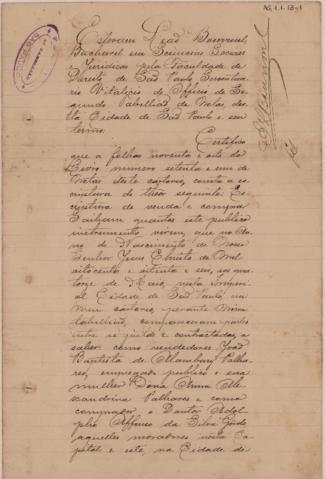 AG.1.1.1871
Estevam Leão Bourroul,
Bacharel em Sciencias Sociaes
e Juridicas pela Faculdade de
Direito de São Paulo Serventua-
rio Vitalicio do Officio de Se-
gundo Tabellião de Notas des-
ta Cidade de São Paulo e seu
termo.
Certifico
que a folhas noventa e oito do
Livro numero setenta e um de
Notas deste cartorio, consta a es-
criptura do theor seguinte: Es-
criptura de venda e compra
Saibam quantos este publico
instrumento virem, que no An-
no do Nascimento de Nosso
Senhor Jesus Christo de Mil
oito centos e setenta e um, aos qua-
torze de Maio, nesta Impe-
rial Cidade de São Paulo, em
meu cartorio, perante mim
tabellião, compareceram partes
entre si justas e contractadas, a
saber: como vendedores João
Baptista de Alambary Palha-
res, empregado publico e sua
mulher Dona Anna Ale-
xandrina Palhares e como
comprador, o Doutor Adol-
pho Affonso da Silva Gordo
aquelles moradores nesta Ca-
pital e este, na Cidade de